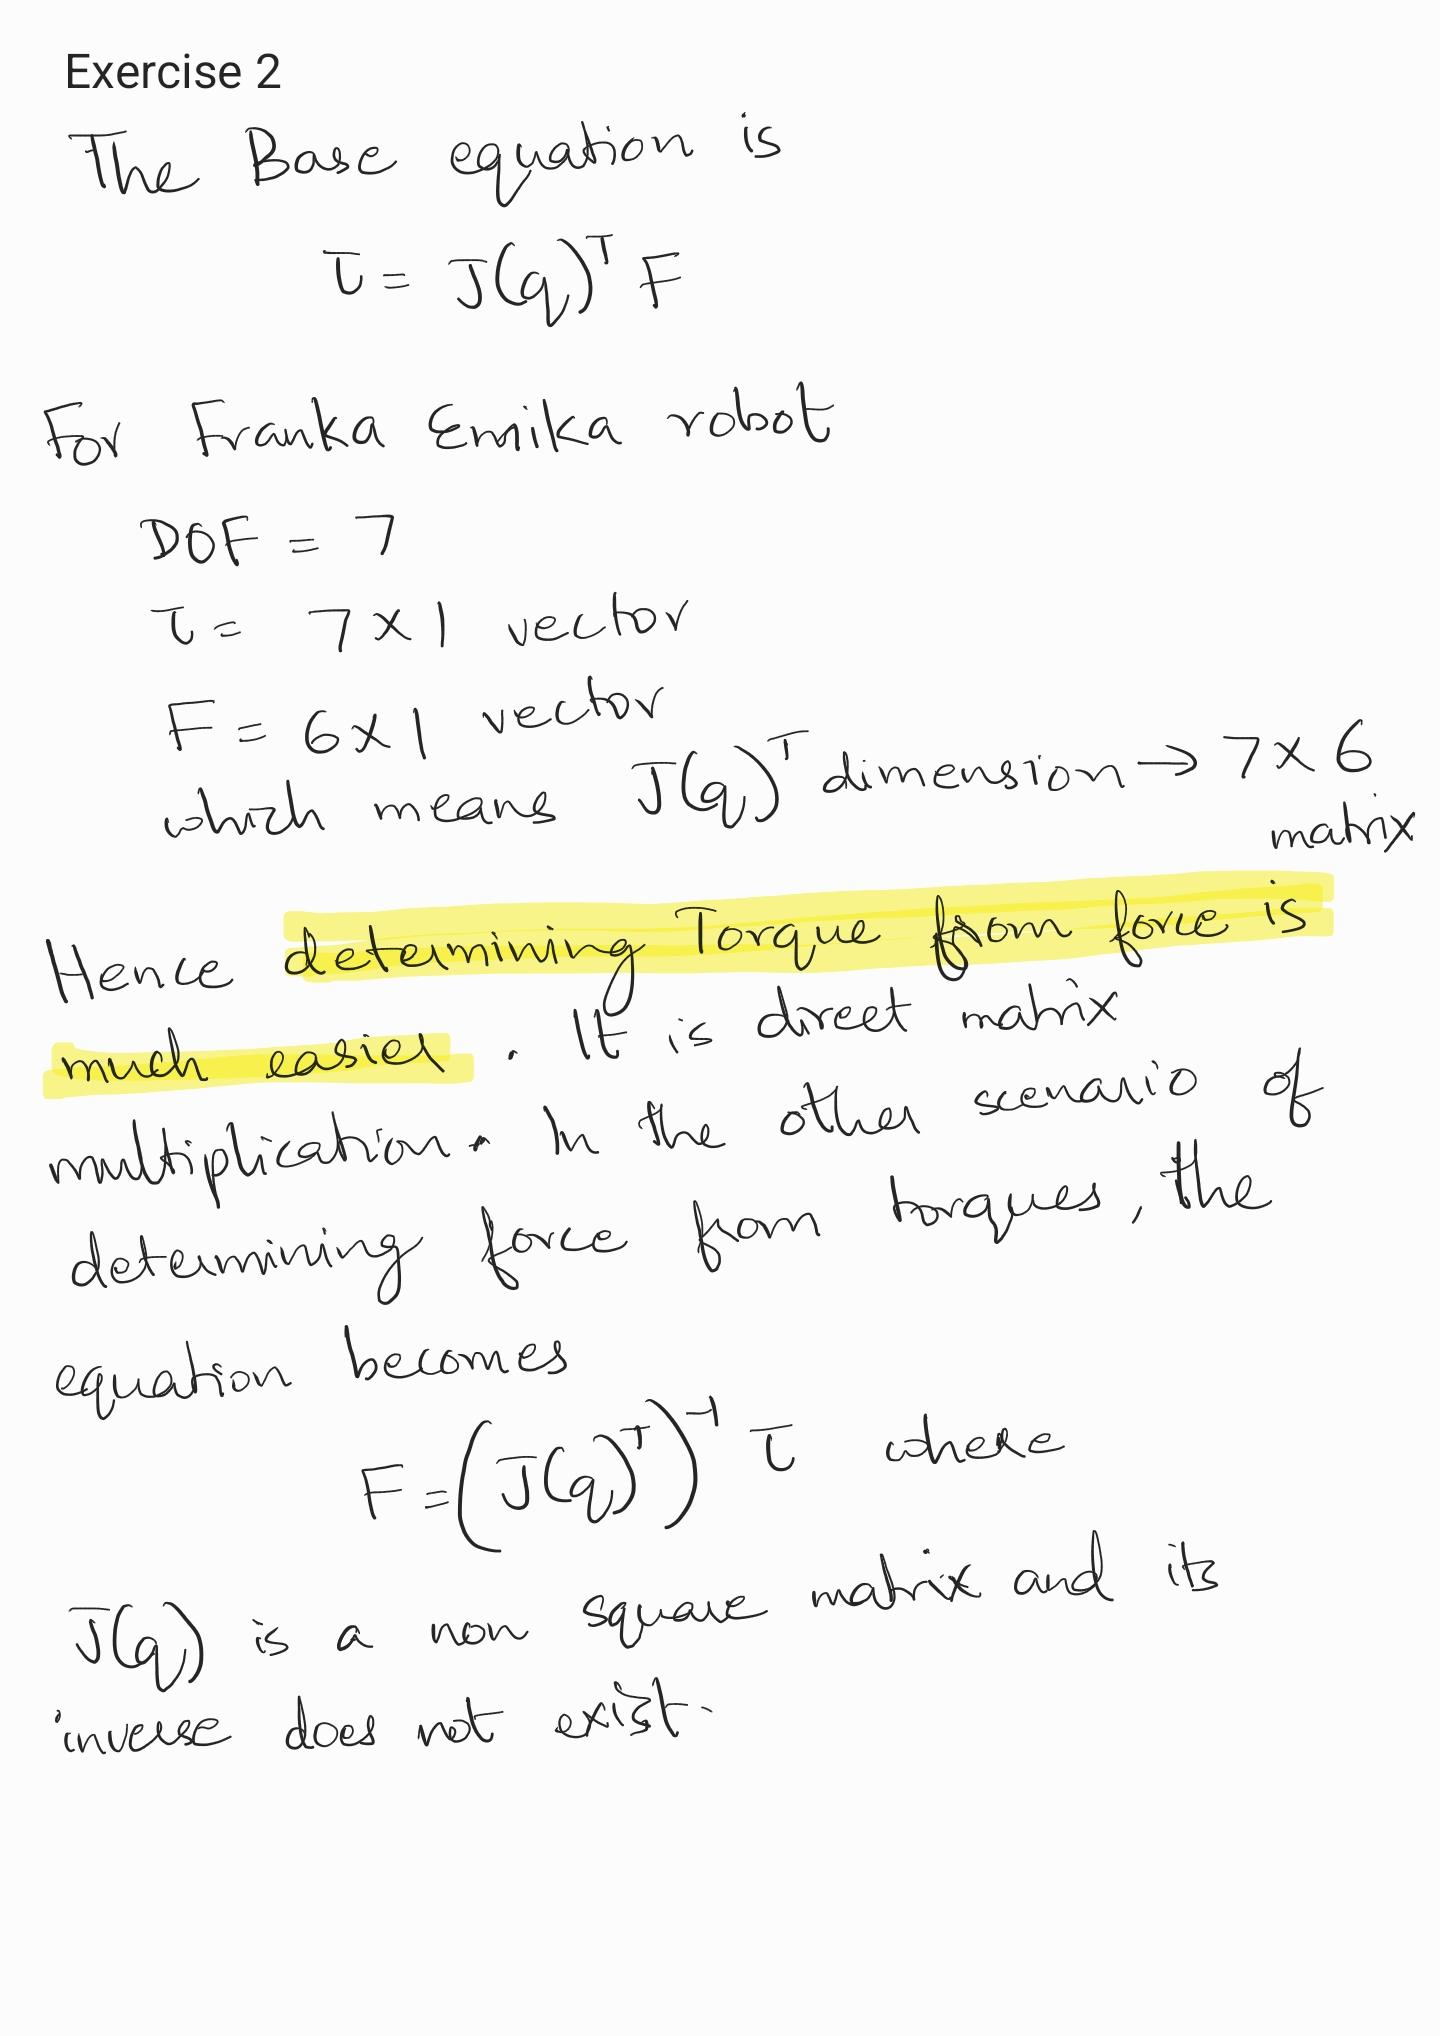 Exercise 2
The Base equation is
τ = J(q)ᵀ F
For Franka Emika robot
DOF = 7
τ = 7 × 1 vector
F = 6 × 1 vector
which means J(q)ᵀ dimension → 7 × 6
matrix
Hence determining Torque from force is
much easier. It is direct matrix
multiplication. In the other scenario of
determining force from torques, the
equation becomes
F = (J(q)ᵀ)⁻¹ τ where
J(q) is a non square matrix and its
inverse does not exist.